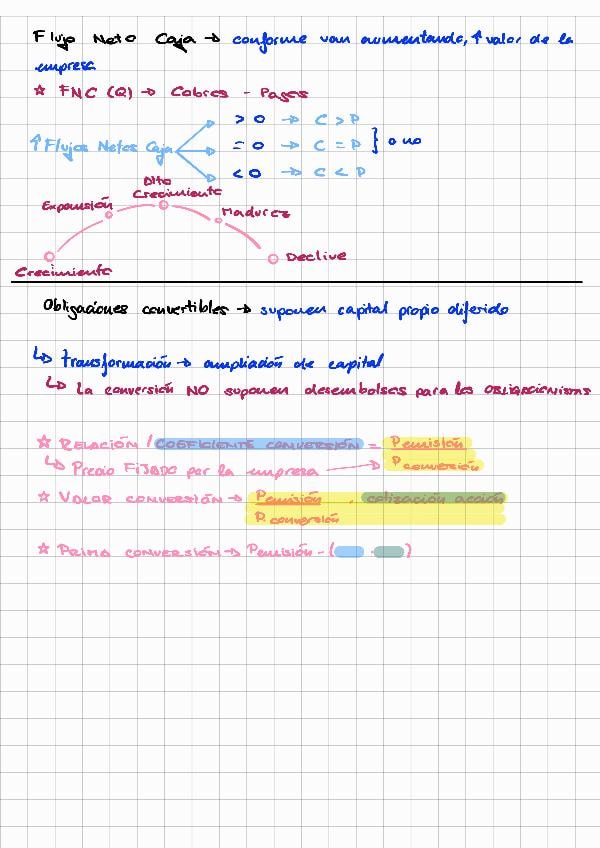 Flujo Neto Caja → conforme van aumentando, ↑ valor de la
empresa
☆ FNC (Q) → Cobros - Pagos
> 0 → C > P
↑ Flujos Netos Caja = 0 → C = P } o no
< 0 → C < P
Alto
Crecimiento
Expansión
Madurez
Declive
Crecimiento
Obligaciones convertibles → suponen capital propio diferido
↳ transformación → ampliación de capital
↳ La conversión NO suponen desembolsos para los OBLIGACIONISTAS
☆ RELACIÓN / COEFICIENTE CONVERSIÓN = Pemisión
↳ Precio FIJADO por la empresa → P conversión
☆ VALOR CONVERSIÓN → Pemisión . cotización acción
P conversión
☆ PRIMA CONVERSIÓN → Pemisión - ( . )